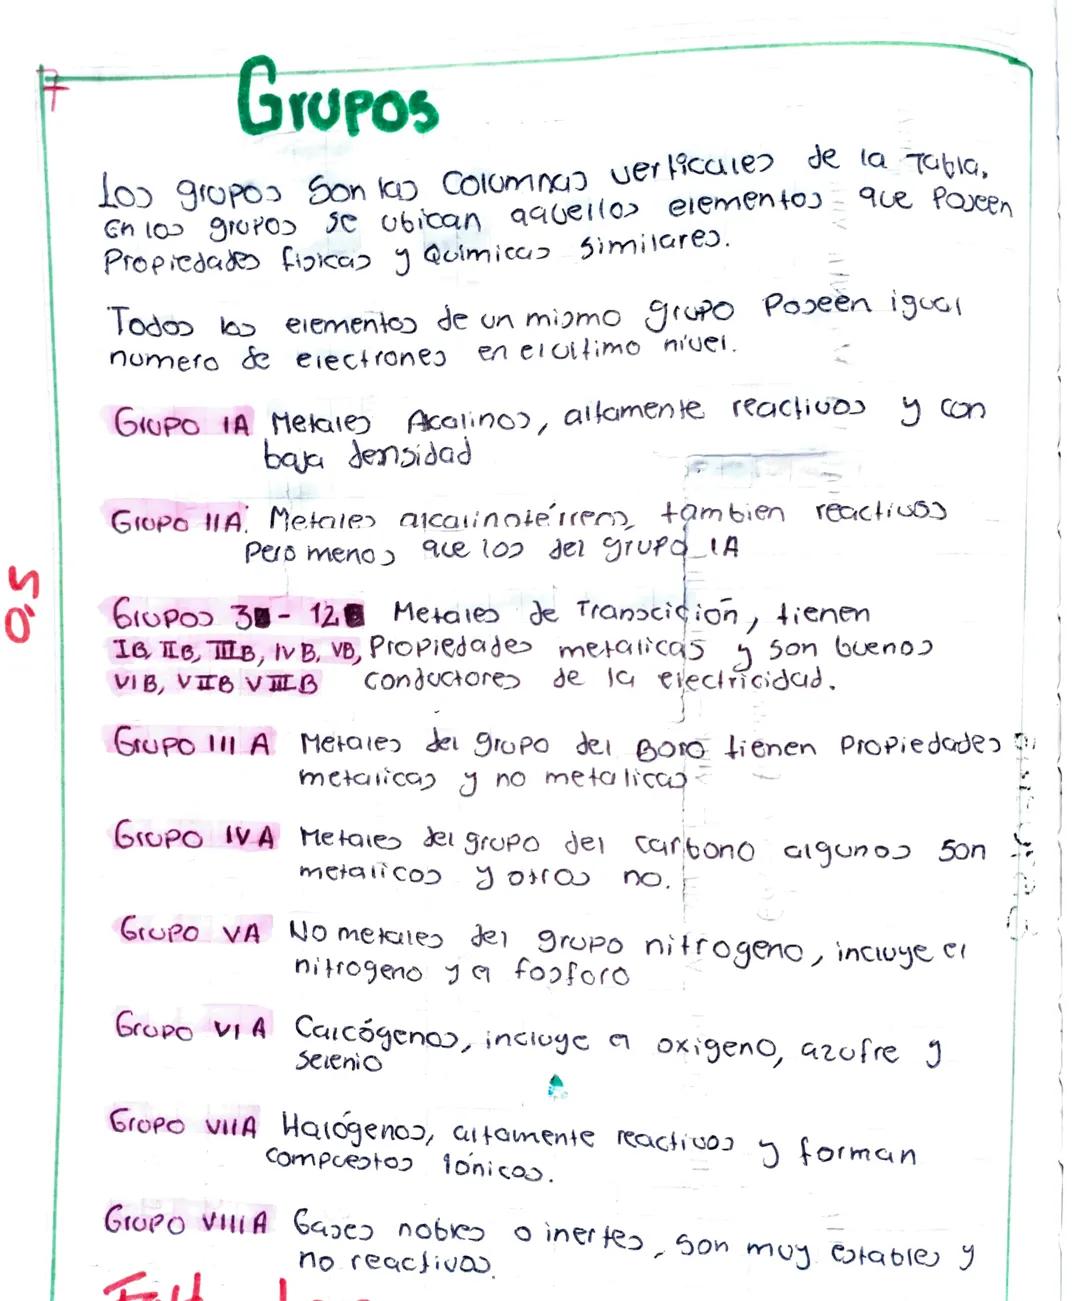 Grupos
Los grupos son las columnas verticales de la Tabla.
En los grupos se ubican aquellos elementos que Poseen
Propiedades fisicas y Químicas similares.
Todos los elementos de un mismo grupo Poseen igual
numero de electrones en el ultimo nivel.
Grupo IA Metales Acalinos, altamente reactivos y con
baja densidad
Grupo IIA: Metales alcalinotérreros, tambien reactivos
Pero menos que los del grupo IA
Grupos 3 - 12 Metales de Transcición, tienen
IB, IIB, IIIB, IVB, VB, Propiedades metalicas y son buenos
VIB, VIIB VIIIB conductores de la electricidad.
Grupo III A Metales del grupo del Boro tienen Propiedades
metalicas y no metalicas
Grupo IVA Metales del grupo del carbono algunos son
metalicos y otros no.
Grupo VA No metales del grupo nitrogeno, incluye el
nitrogeno y el fosforo
Grupo VIA Calcógenos, incluye el oxigeno, azufre y
selenio
Grupo VIIA Halógenos, altamente reactivos y forman
compuestos iónicos.
Grupo VIIIA Gases nobles o inertes, son muy estables y
no reactivos.
0,5